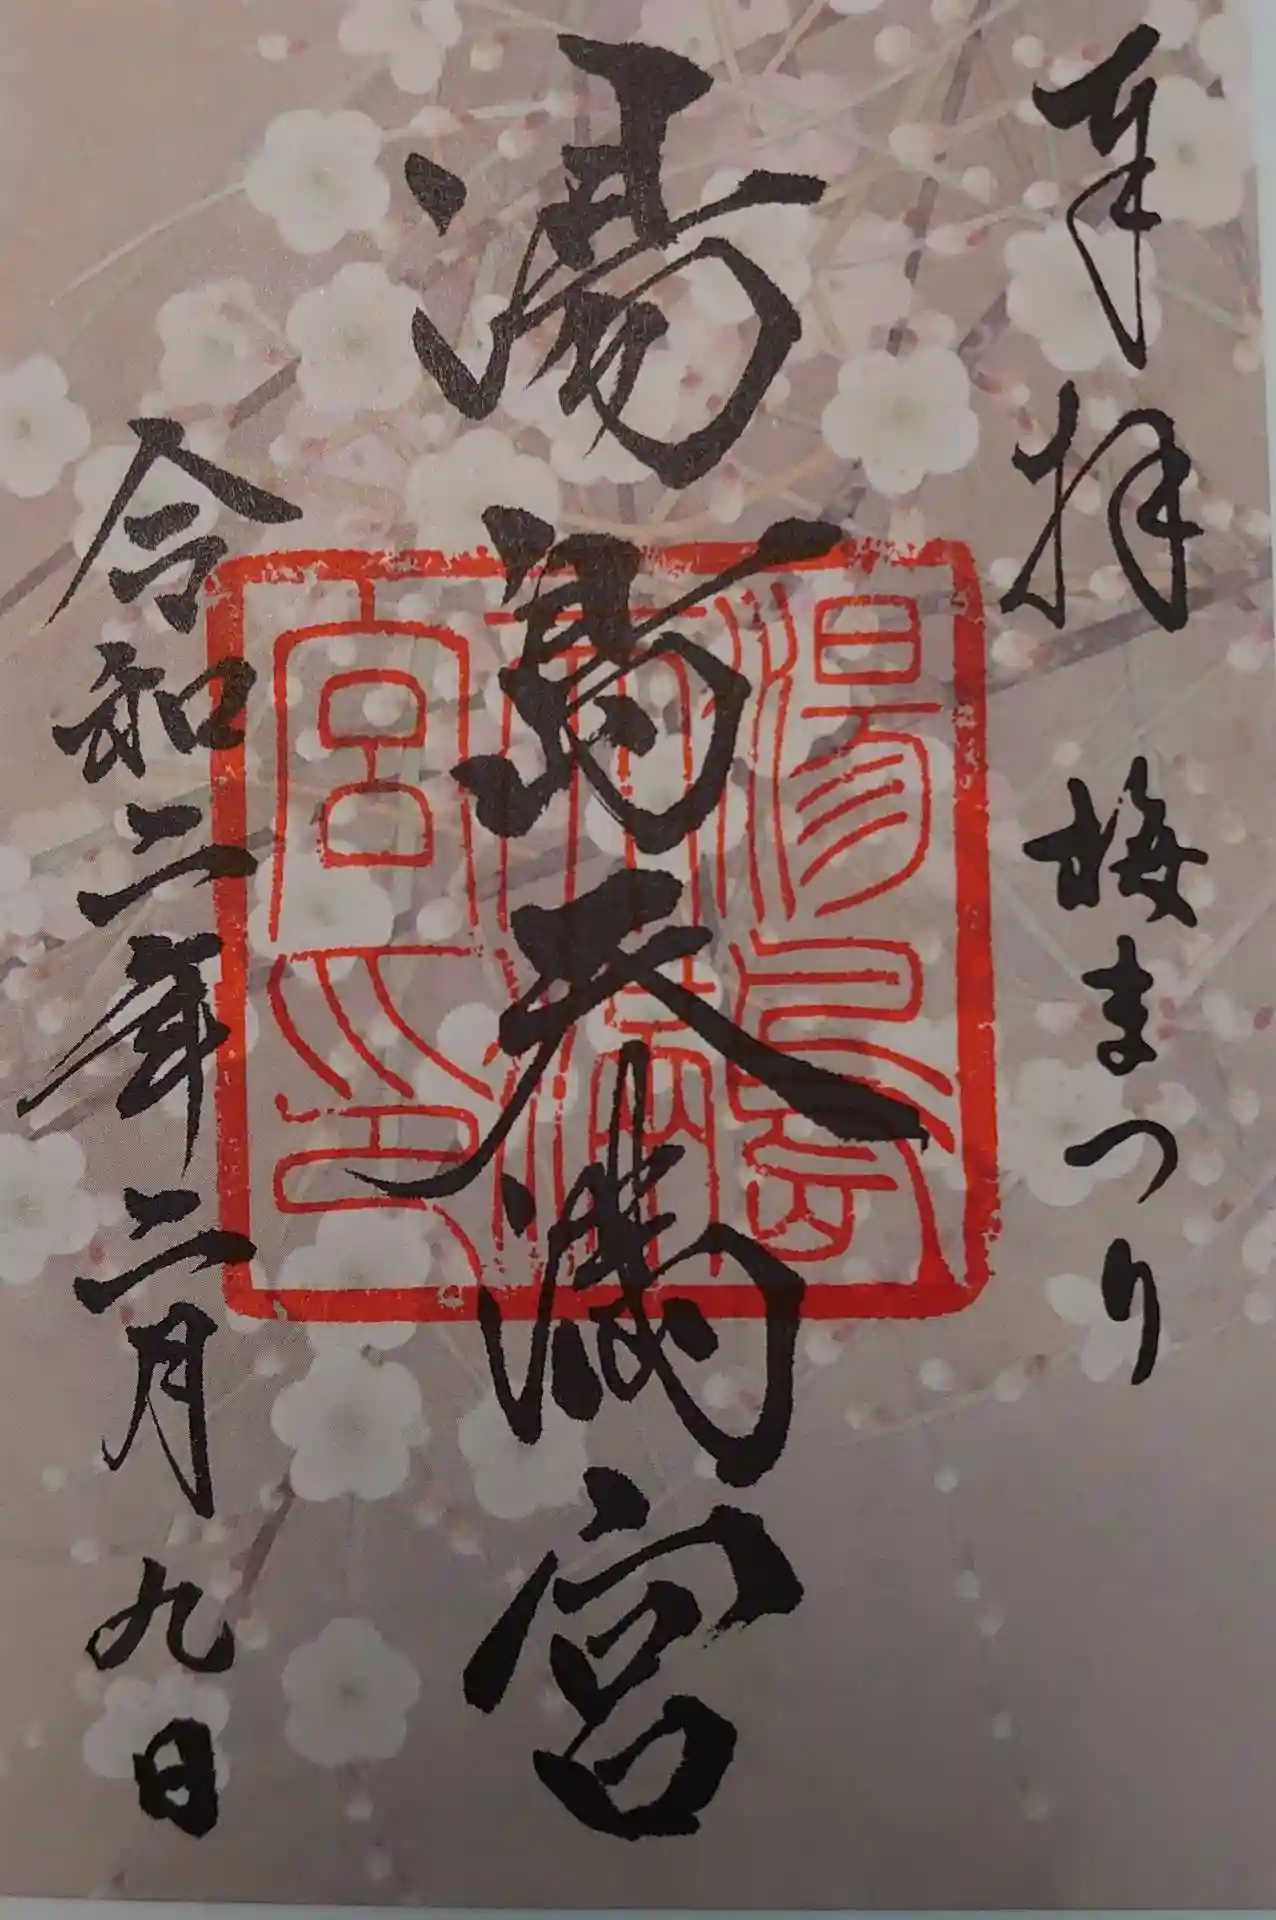 奉拝 梅まつり
湯島天満宮
令和二年二月九日
湯島天満宮印